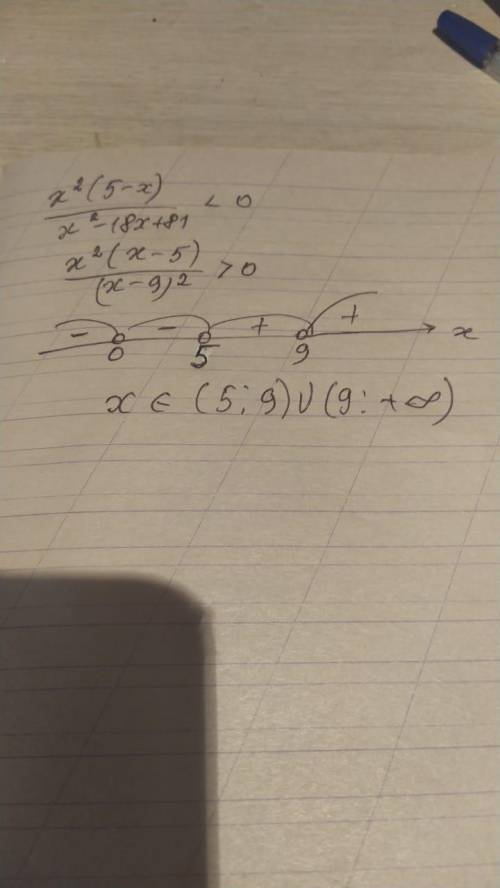 x²(5-x)
x²-18x+81 < 0
x²(x-5)
(x-9)² > 0
- - + +
0 5 9 x
x ∈ (5; 9)∪(9; +∞)